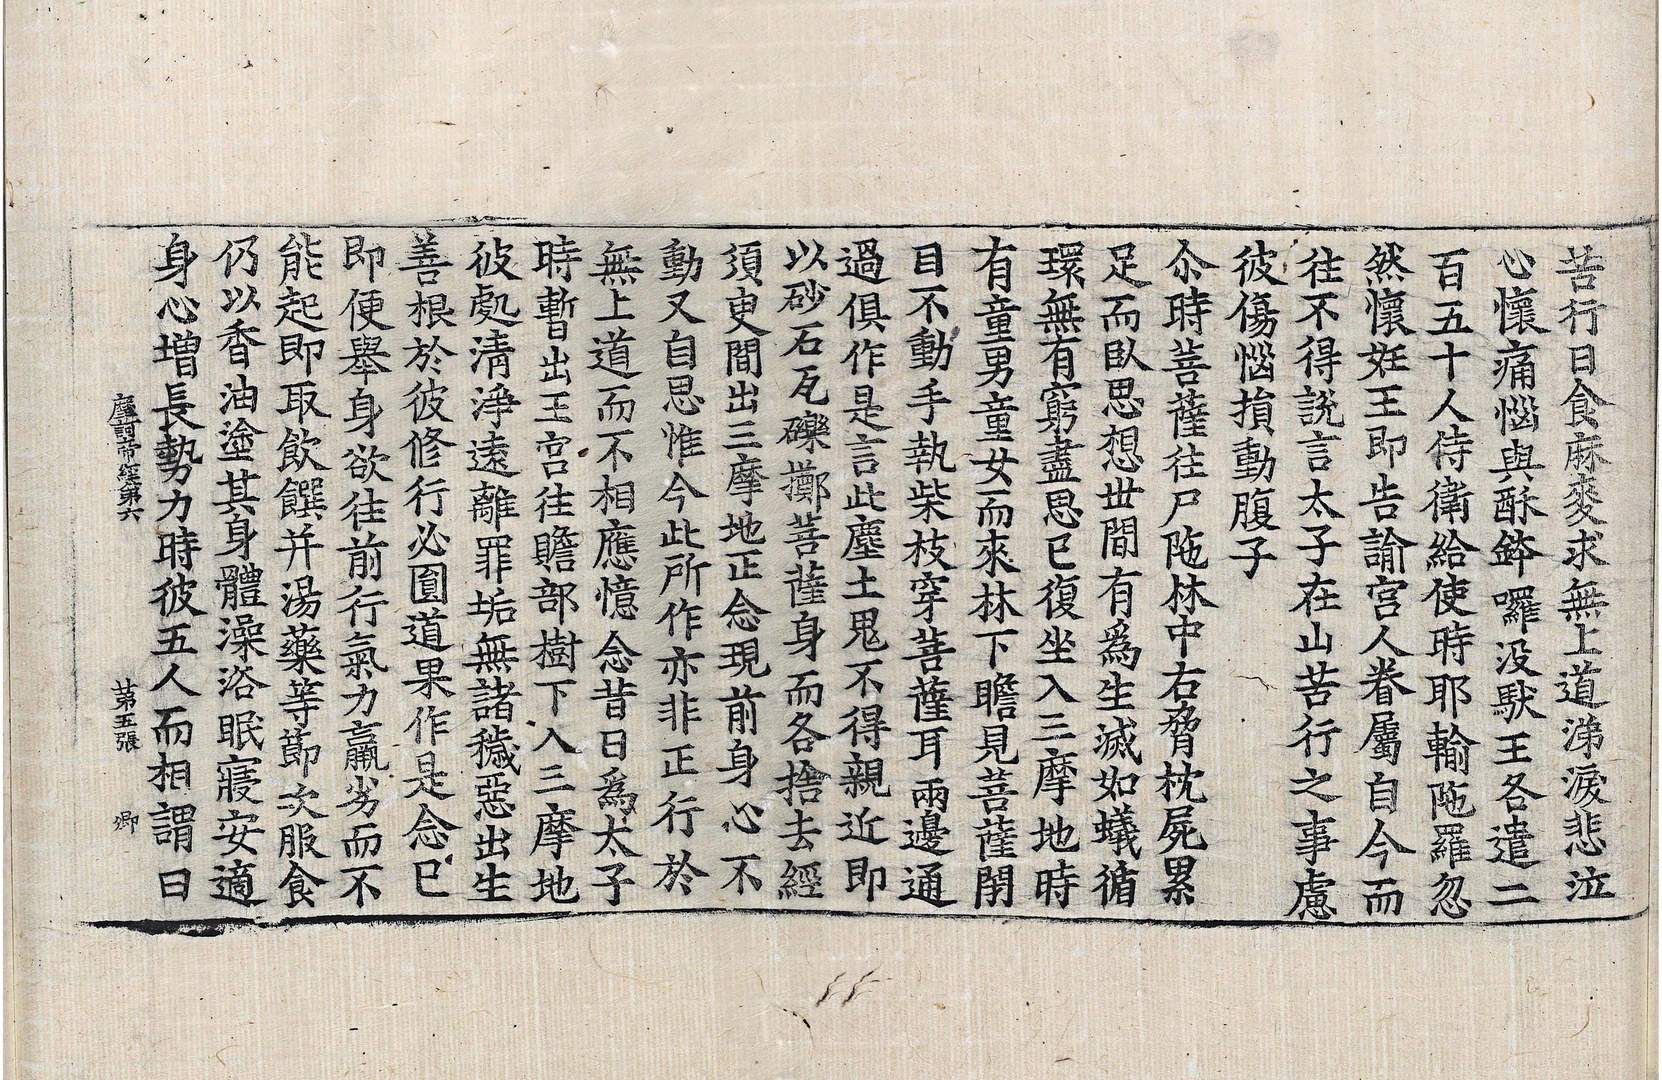 苦行日食麻麥求無上道涕淚悲泣
心懷痛惱與酥鉢囉没䭾王各遣二
百五十人待衛給使時耶輸陁羅忽
然懷姙王即告諭宫人眷屬自今而
往不得說言太子在山苦行之事慮
彼傷惱損動腹子
尒時菩薩往尸陁林中右脅枕屍累
足而臥思想世間有爲生滅如蟻循
環無有窮盡思已復坐入三摩地時
有童男童女而來林下瞻見菩薩閉
目不動手執柴枝穿菩薩耳兩邊通
過俱作是言此塵土鬼不得親近即
以砂石瓦礫擲菩薩身而各捨去經
須臾間出三摩地正念現前身心不
動又自思惟今此所作亦非正行於
無上道而不相應憶念昔日爲太子
時暫出王宫往贍部樹下入三摩地
彼處清淨遠離罪垢無諸穢惡出生
善根於彼修行必圓道果作是念已
即便舉身欲往前行氣力羸劣而不
能起即取飲饌并湯藥等節次服食
仍以香油塗其身體澡浴眠寢安適
身心增長勢力時彼五人而相謂曰
摩訶帝經第六 苐五張 卿